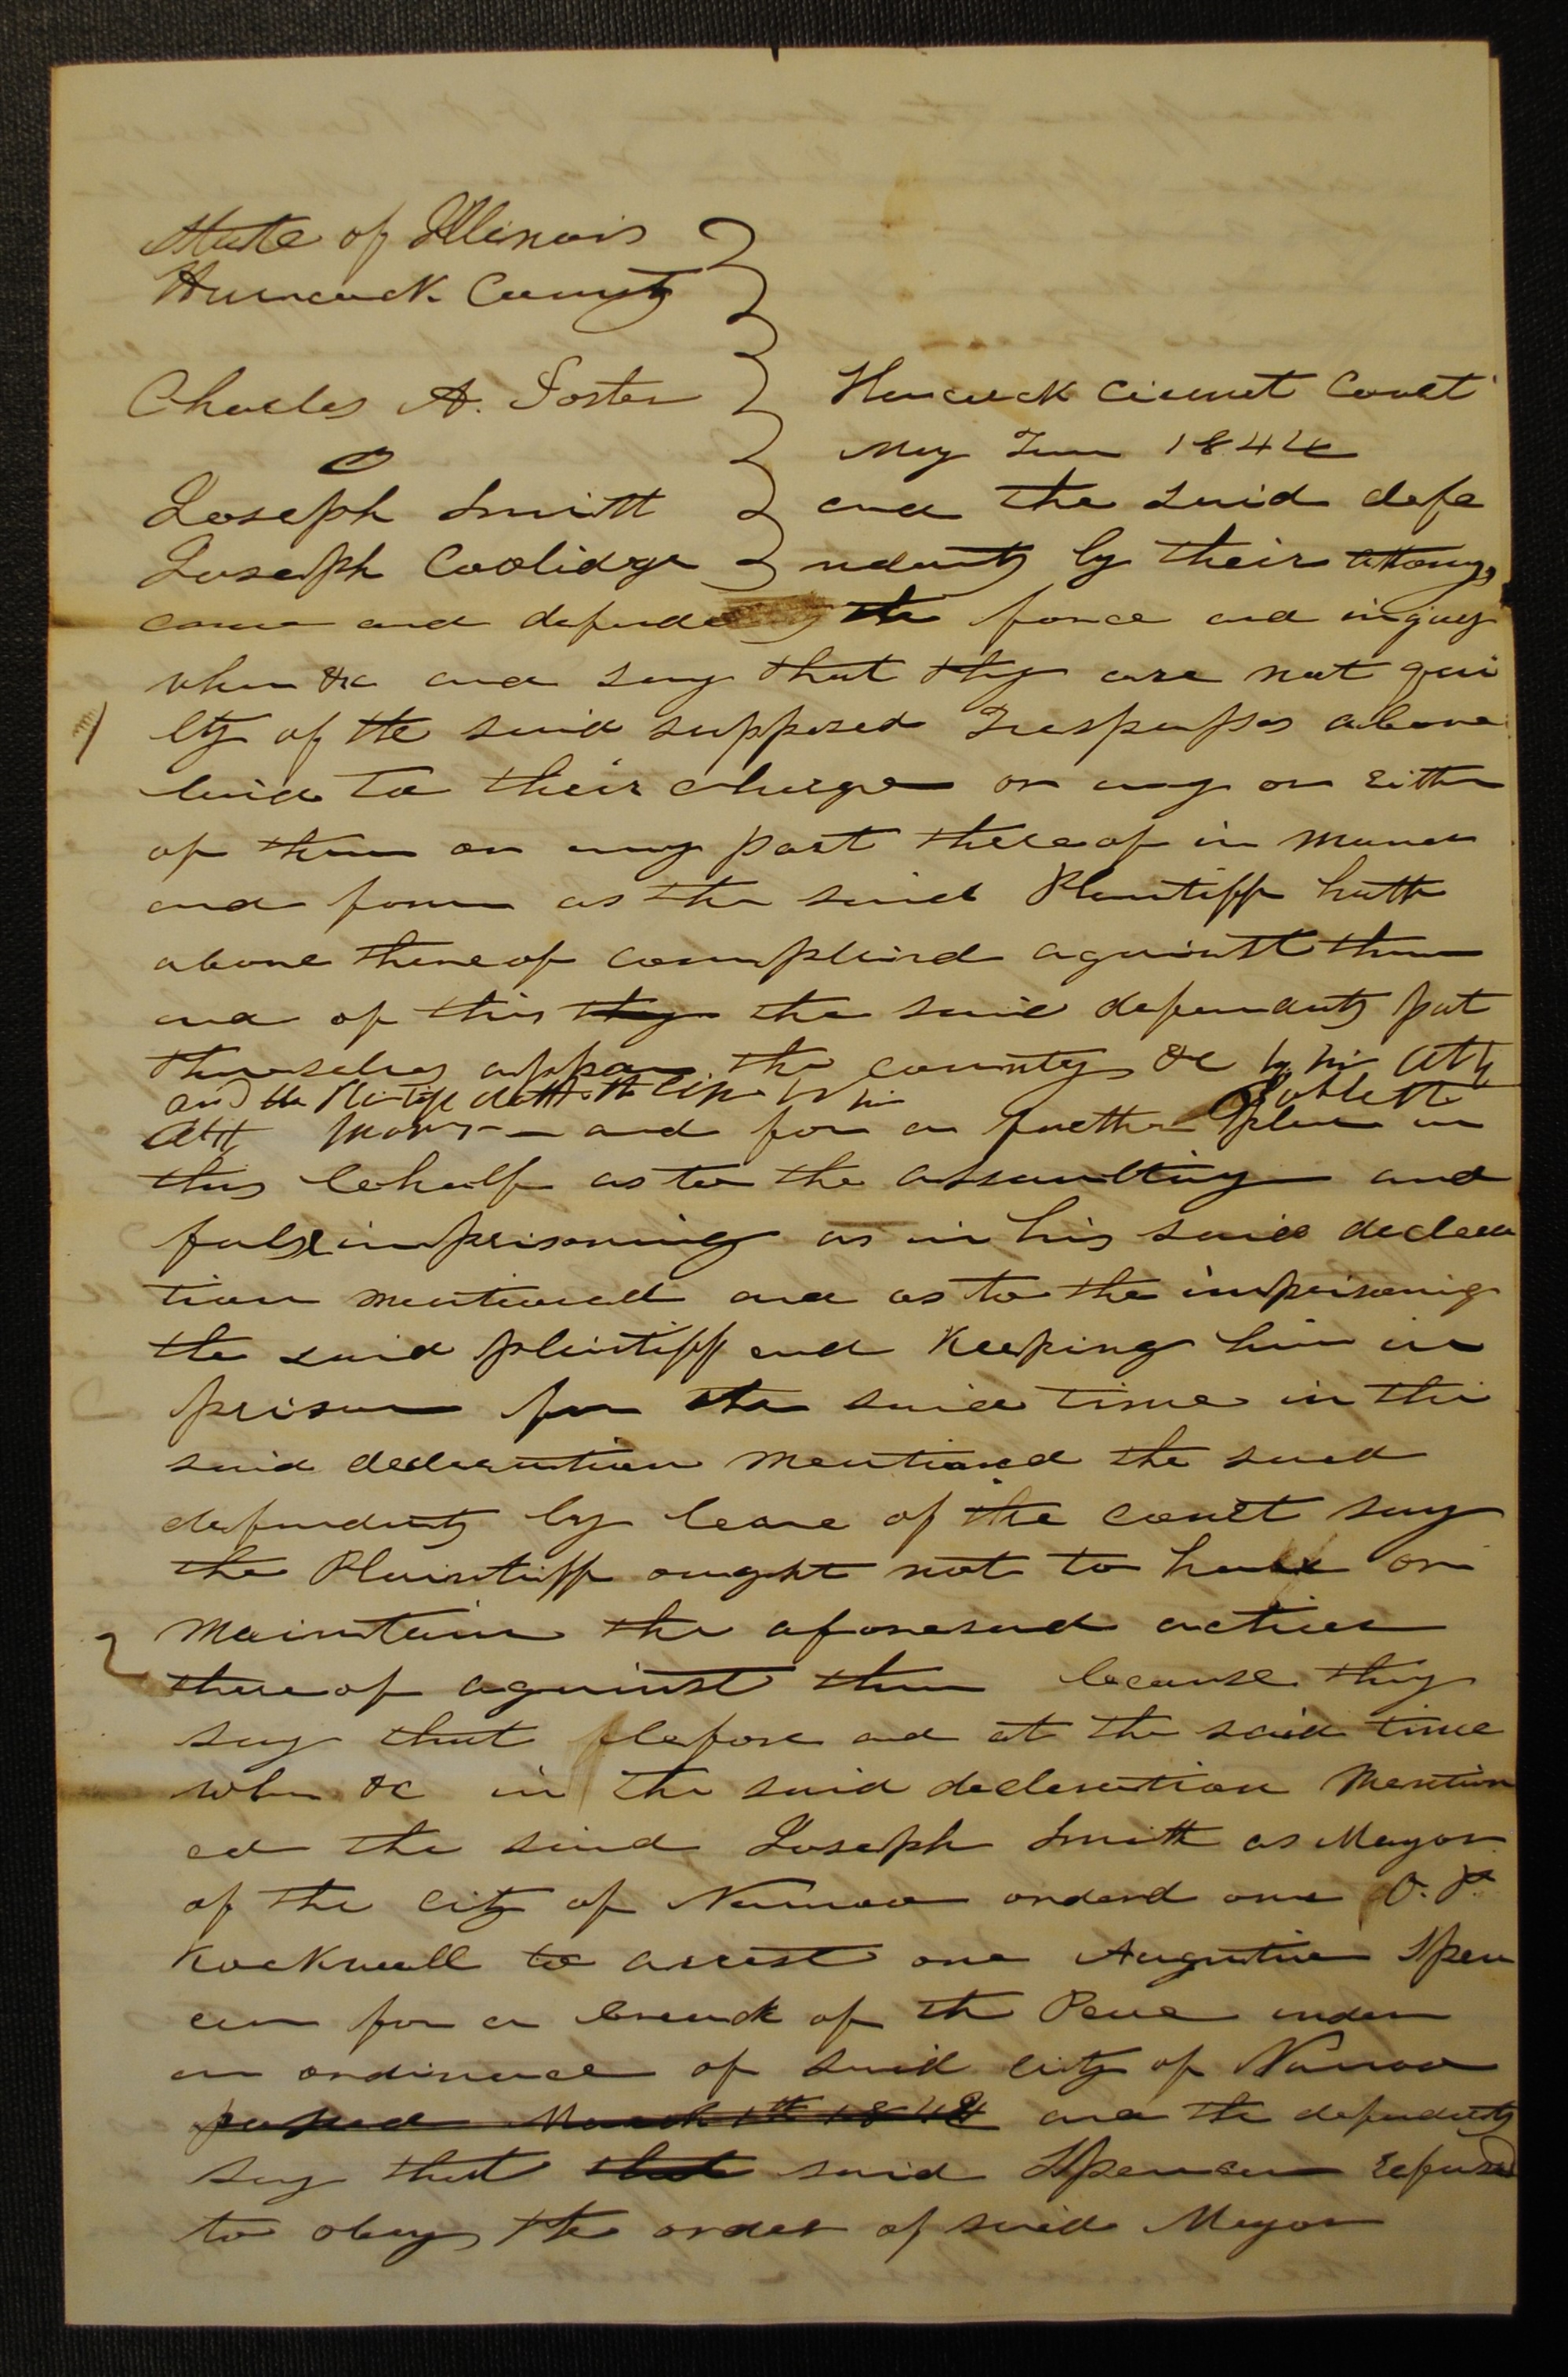 State of Illinois
Hancock County
Charles A. Foster
Hancock Circuit Court
May Term 1844
vs
Joseph Smith
and the said defe
Joseph Coolidge
ndants by their attorneys
come and defend the force and injury
when &c and say that they are not gui
lty of the said supposed Trespasses above
laid to their charge or any or either
of them or any part thereof in manner
and form as the said Plantiff hath
above thereof complaind against them
and of this they the said defendants put
themselves uppon the county &c by his Atty
and the Plaintiff doth the like by his
Atty and for a further plea in
this behalf as to the assaulting and
false imprisoning as in his said declera
tion mentioned and as to the imprisonig
the said plaintiff and Keeping him in
prison for the said time in the
said decleration mentioned the said
defendants by leave of the court say
the Plaintiff ought not to have or
maintain the aforesaid action
thereof against them because they
say that before and at the said time
when &c in the said decleration Mention
ed the said Joseph Smith as Mayor
of the city of Nauvoo orderd one O. P.
Rockwell to arrest one Augustine Spen
cer for a breach of the Peace under
an ordinance of said city of Nauvoo
passed March 1th 1842 and the defendants
say that that said Spencer refused
to obey the order of said Mayor